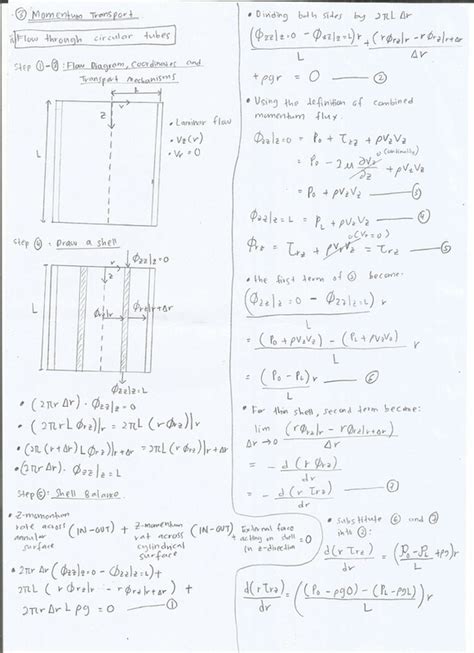 ⑧ Momentum Transport
Flow through circular tubes
Step ①-③: Flow Diagram, Coordinates and
Transport Mechanisms
R
r
z
L
• Laminar flow
• Vz(r)
• Vr = 0
Step ④: Draw a shell
Φzz|z=0
r
z
L
Φrz|r
Φrz|r+Δr
Φzz|z=L
• (2πrΔr) · Φzz|z=0
• (2πrLΦrz)|r = 2πL(rΦrz)|r
• (2π(r+Δr)LΦrz)|r+Δr = 2πL(rΦrz)|r+Δr
• (2πrΔr) · Φzz|z=L
Step ⑤: Shell Balance
• Z-momentum rate across annular surface (IN-OUT) + Z-momentum rat across cylindrical surface (IN-OUT) + External force acting in shell in z-direction = 0
• 2πrΔr(Φzz|z=0 - Φzz|z=L) +
2πL(rΦrz|r - rΦrz|r+Δr) +
2πrΔrLρg = 0 —— ①
• Dividing both sides by 2πLΔr
(Φzz|z=0 - Φzz|z=L)r / L + (rΦrz|r - rΦrz|r+Δr) / Δr
+ ρgr = 0 —— ②
• Using the definition of combined
momentum flux.
Φzz|z=0 = P0 + τzz + ρVzVz
= P0 - 2μ ∂Vz/∂z + ρVzVz
0 (continuity)
= P0 + ρVzVz —— ③
Φzz|z=L = PL + ρVzVz —— ④
0 (Vr=0)
Φrz = τrz + ρVrVz = τrz —— ⑤
• The first term of ② become:
(Φzz|z=0 - Φzz|z=L)r / L
= (P0 + ρVzVz) - (PL + ρVzVz) / L r
= (P0 - PL)r / L —— ⑥
• For thin shell, second term become:
lim Δr→0 (rΦrz|r - rΦrz|r+Δr) / Δr
= - d(rΦrz) / dr
= - d(rτrz) / dr —— ⑦
• Substitute ⑥ and ⑦
into ②:
d(rτrz)/dr = (P0-PL/L + ρg)r
d(rτrz)/dr = ((P0 - ρg0) - (PL - ρgL) / L)r